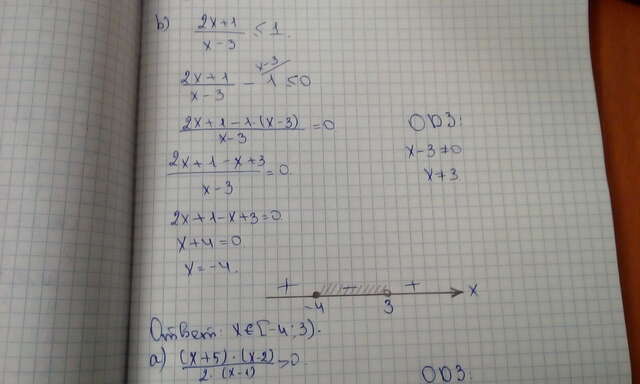 b) (2x+1)/(x-3) ≤ 1.
(2x+1)/(x-3) - 1 ≤ 0
x-3
(2x+1-1·(x-3))/(x-3) = 0
ОДЗ:
x-3≠0
x≠3
(2x+1-x+3)/(x-3) = 0
2x+1-x+3=0
x+4=0
x=-4.
+ - +
-4 3 x
Ответ: x∈[-4;3).
a) ((x+5)·(x-2))/(2·(x-1)) >0
ОДЗ: